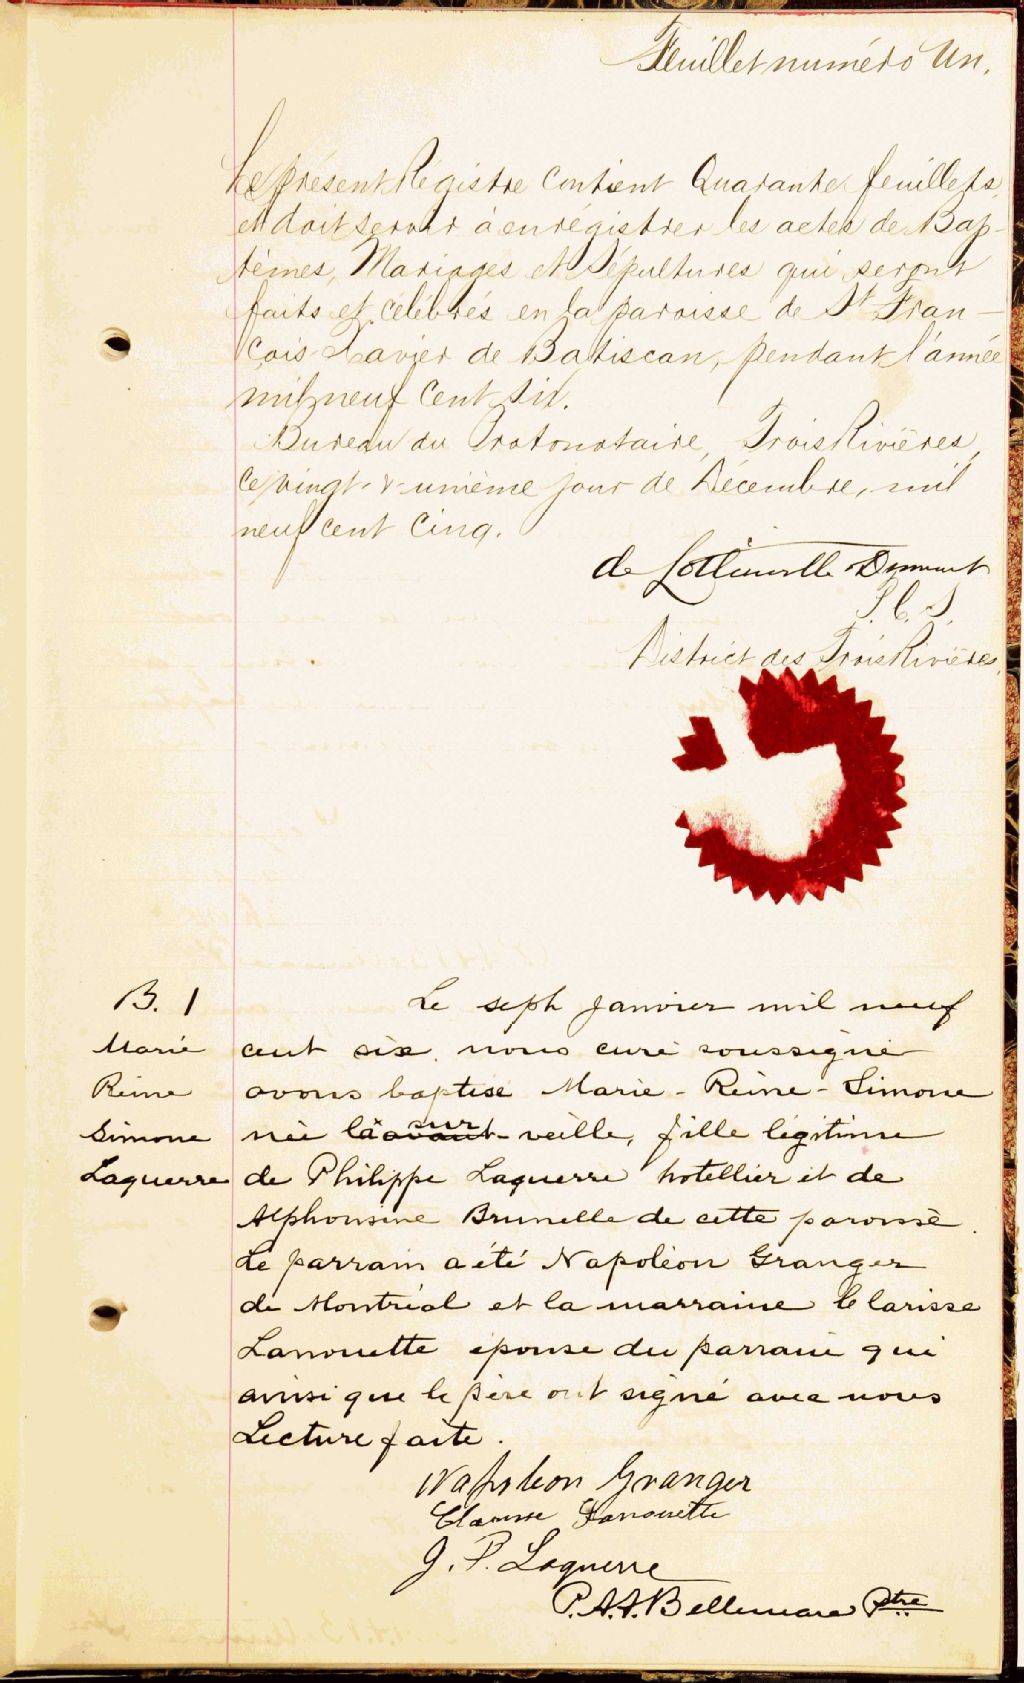 Feuillet numéro Un.
Le présent Régistre contient Quarante feuillets,
et doit servir à enrégistrer les actes de Bap-
têmes, Mariages et Sépultures qui seront
faits et célébrés en la paroisse de St Fran-
çois-Xavier de Batiscan, pendant l'année
mil neuf cent six.
Bureau du Protonotaire, Trois Rivières,
ce vingt & unième jour de Décembre, mil
neuf cent cinq.
de Lottinville Dumont
P. C. S.
District des Trois Rivières.
B. 1
Marie
Reine
Simone
Laguerre
Le sept janvier mil neuf
cent six nous curé soussigné
avons baptisé Marie-Reine-Simone
sur
née l'avant-veille, fille légitime
de Philippe Laguerre hotellier et de
Alphonsine Brunelle de cette paroisse.
Le parrain a été Napoléon Granger
de Montréal et la marraine Clarisse
Lanouette épouse du parrain qui
ainsi que le père ont signé avec nous
Lecture faite.
Napoléon Granger
Clarisse Lanouette
J. P. Laguerre
P.A.A. Bellemare Ptre